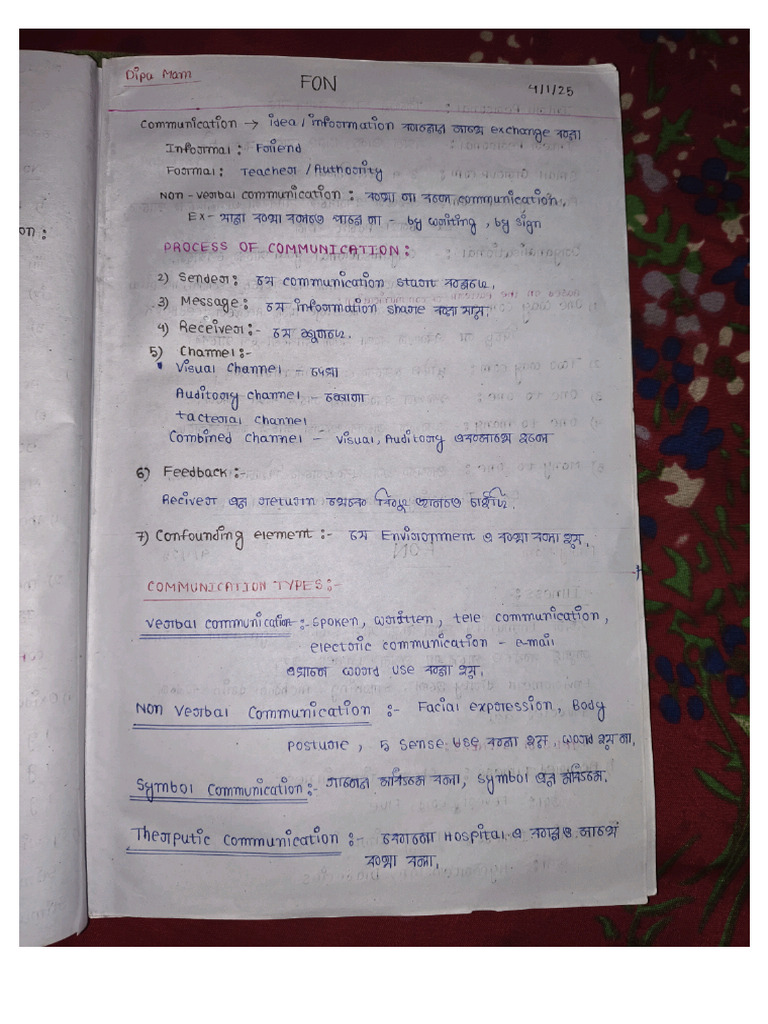 Dipa Mam
FON
4/1/25
Communication → idea / information কারোর সাথে exchange করা
Informal : Friend
Formal : Teacher / Authority
Non-verbal communication : কথা না বলে communication,
Ex- যারা কথা বলতে পারে না - by writing, by sign
on :
PROCESS OF COMMUNICATION :
2) Sender : যে communication start করছে,
3) Message : যে information share করা হয়,
4) Receiver :- যে শুনছে.
5) Channel :-
• Visual channel - দেখা
Auditory channel - শোনা
tacteral channel
Combined Channel - visual, Auditory একসাথে হলে
6) Feedback :-
Reciver এর return থেকে কিছু জানতে চাইছি.
7) Confounding element :- যে Environment এ কথা বলা হয়,
COMMUNICATION TYPES :-
Verbal communication :- Spoken, written, tele communication,
electoric communication - e-mail
এখানে word use করা হয়,
Non Verbal Communication :- Facial expression, Body
Posture, 5 sense use করা হয়, word হয় না,
Symbol Communication :- গানের মাধ্যমে বলা, symbol এর মাধ্যমে.
Theraputic Communication :- কোনো Hospital এ কারোর সাথে
কথা বলা,